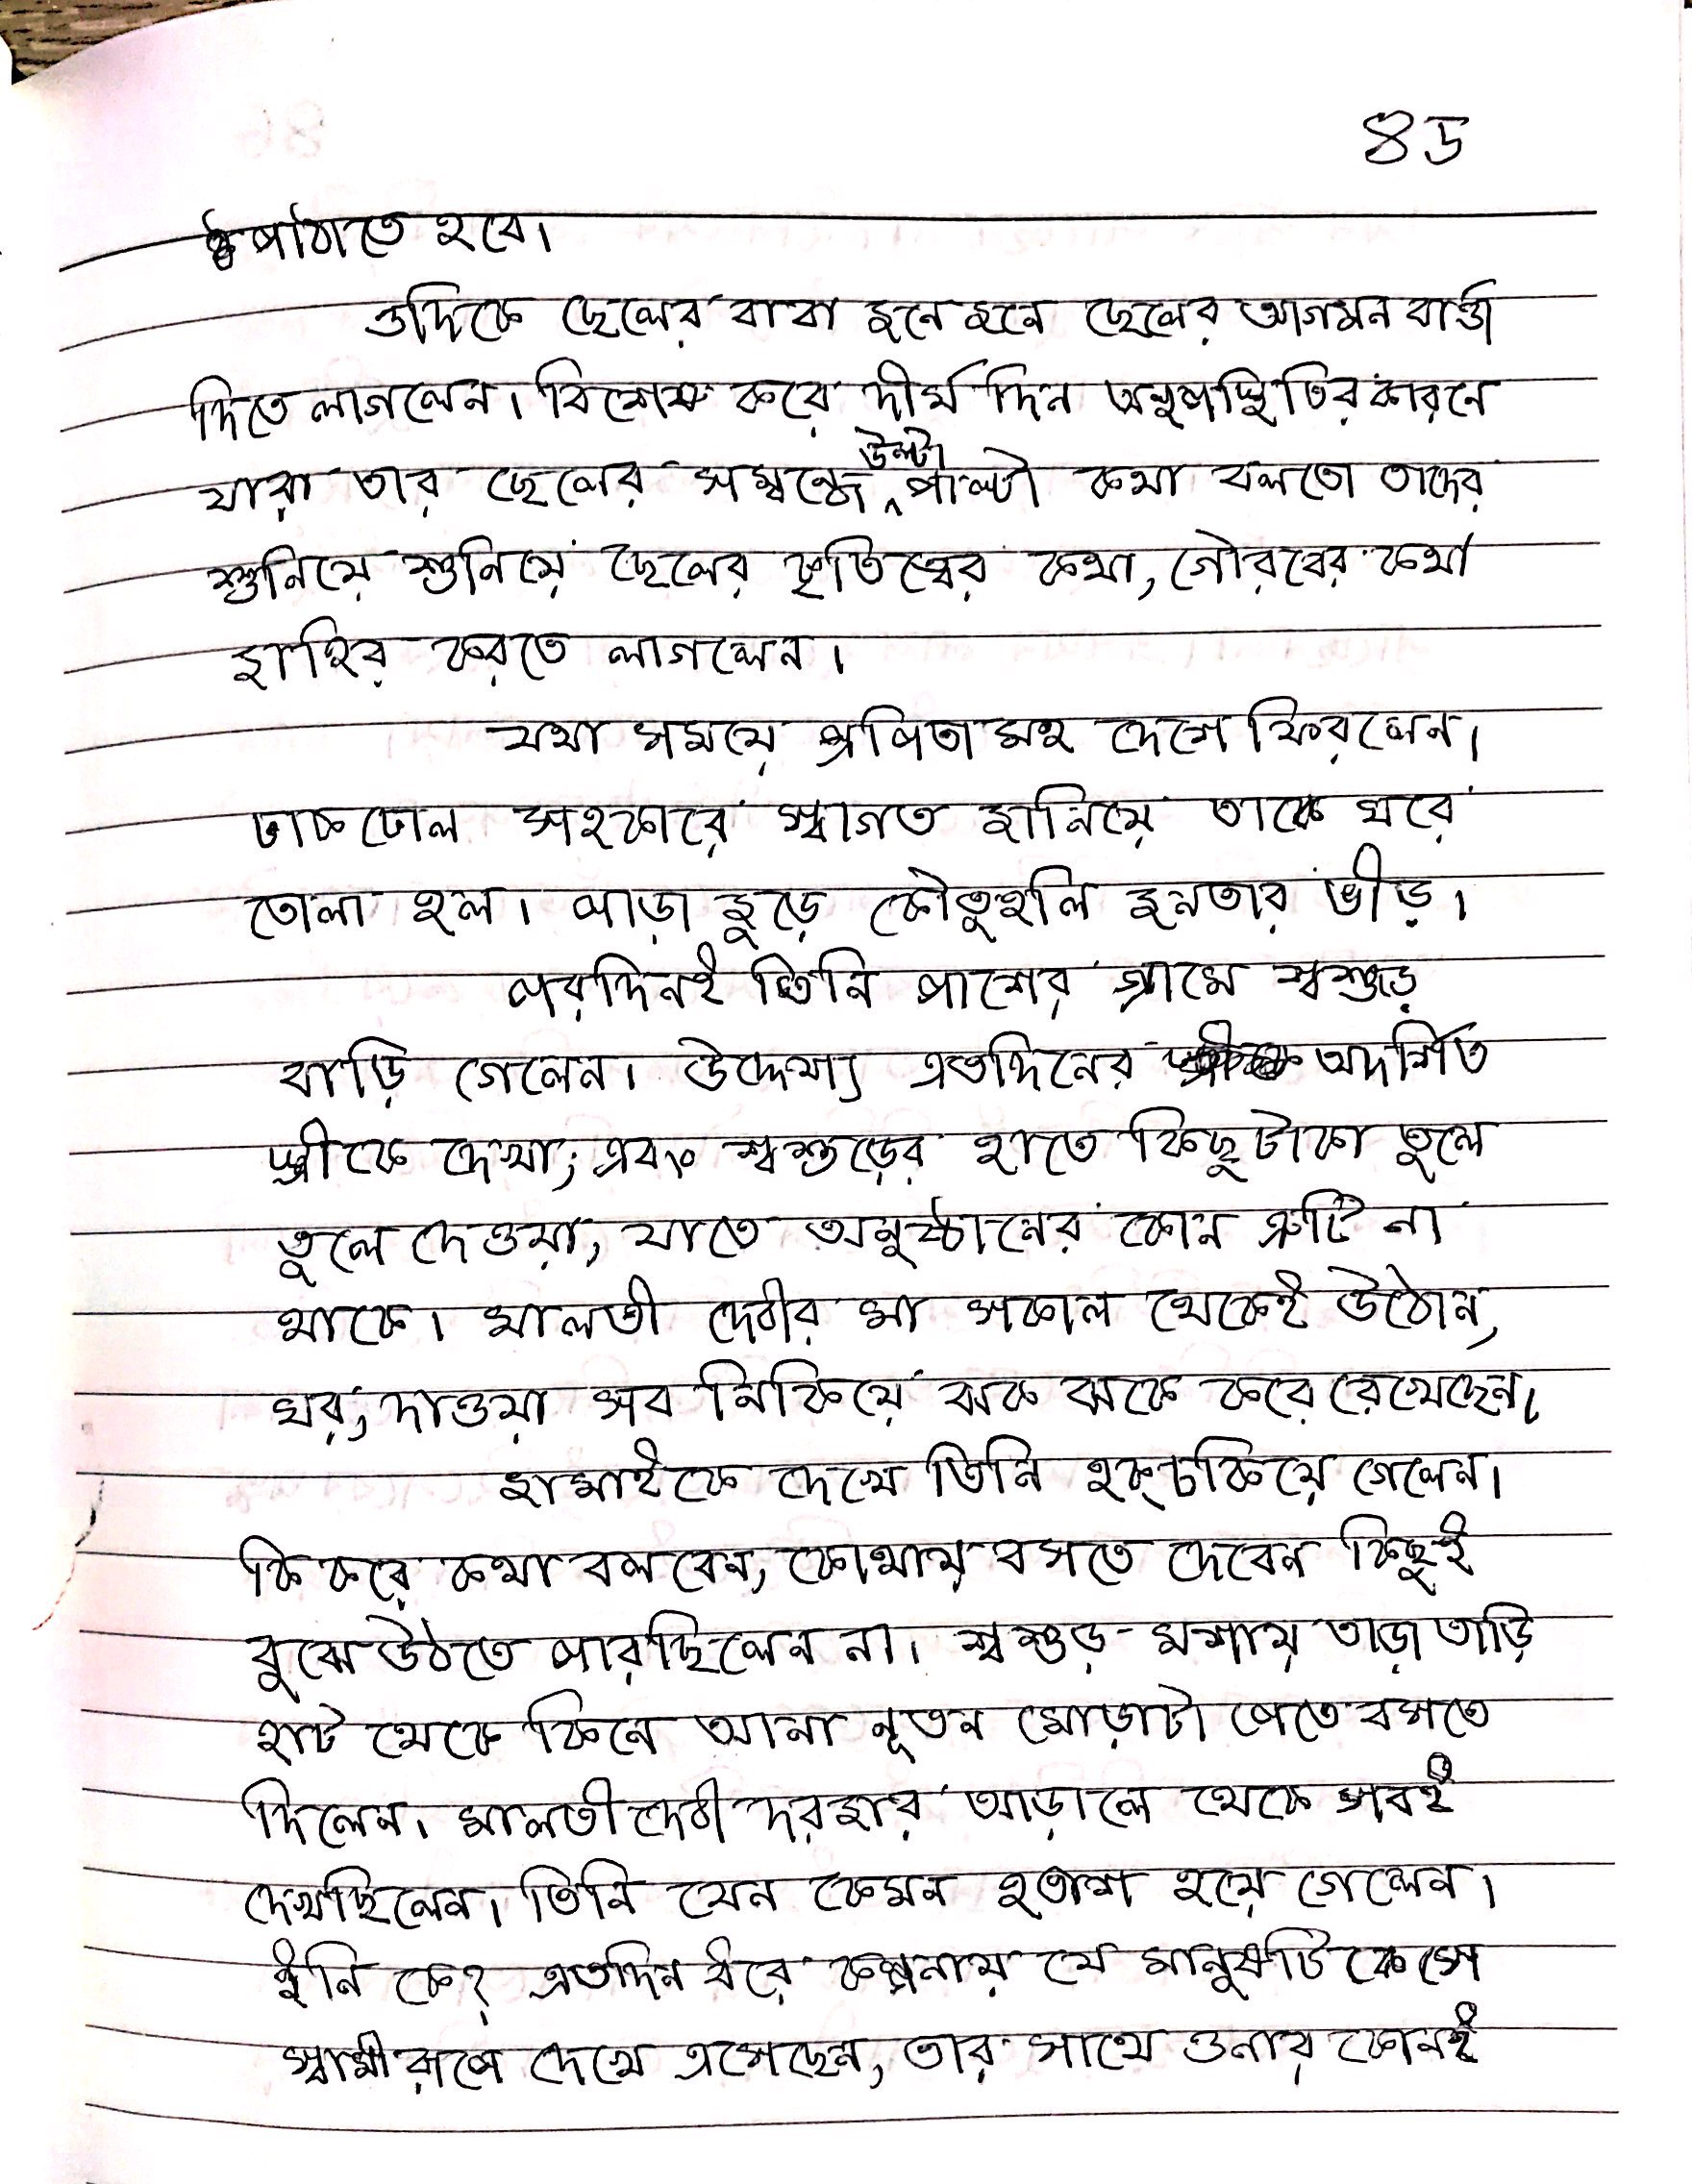 ৪৬
পাঠাতে হবে।
ওদিকে ছেলের বাবা জনে জনে ছেলের আগমন বার্ত্তা
দিতে লাগলেন। বিশেষ করে দীর্ঘ দিন অনুপস্থিতির কারনে
যারা তার ছেলের সম্বন্ধে উল্টা পাল্টা কথা বলতো তাদের
শুনিয়ে শুনিয়ে ছেলের কৃতিত্বের কথা, গৌরবের কথা
জাহির করতে লাগলেন।
যথা সময়ে প্রপিতামহ দেশে ফিরলেন।
ঢাকঢোল সহকারে স্বাগত জানিয়ে তাকে ঘরে
তোলা হল। পাড়া জুড়ে কৌতুহলি জনতার ভীড়।
পরদিনই তিনি পাশের গ্রামে শ্বশুড়
বাড়ি গেলেন। উদ্দেশ্য এতদিনের অদর্শিত
স্ত্রীকে দেখা; এবং শ্বশুড়ের হাতে কিছু টাকা তুলে
তুলে দেওয়া, যাতে অনুষ্ঠানের কোন ত্রুটি না
থাকে। মালতী দেবীর মা সকাল থেকেই উঠোন,
ঘর, দাওয়া সব নিকিয়ে ঝক ঝকে করে রেখেছেন।
জামাইকে দেখে তিনি হক্‌চকিয়ে গেলেন।
কি করে কথা বলবেন, কোথায় বসতে দেবেন কিছুই
বুঝে উঠতে পারছিলেন না। শ্বশুড়-মশায় তাড়াতাড়ি
হাট থেকে কিনে আনা নূতন মোড়াটা পেতে বসতে
দিলেন। মালতী দেবী দরজার আড়ালে থেকে সবই
দেখছিলেন। তিনি যেন কেমন হতাশ হয়ে গেলেন।
ইনি কে? এতদিন ধরে কল্পনায় যে মানুষটিকে সে
স্বামীরূপে দেখে এসেছেন, তার সাথে ওনার কোনই